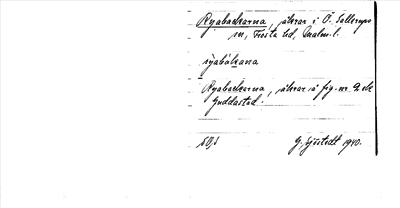 Ryabackarna, åkrar i Ö. Sallerups
sn, Frosta hd, Malm. l.
ryabåkana
Ryabackarna, åkrar å fig. nr 2
Guddastad.
G. Sjöstedt 1940.